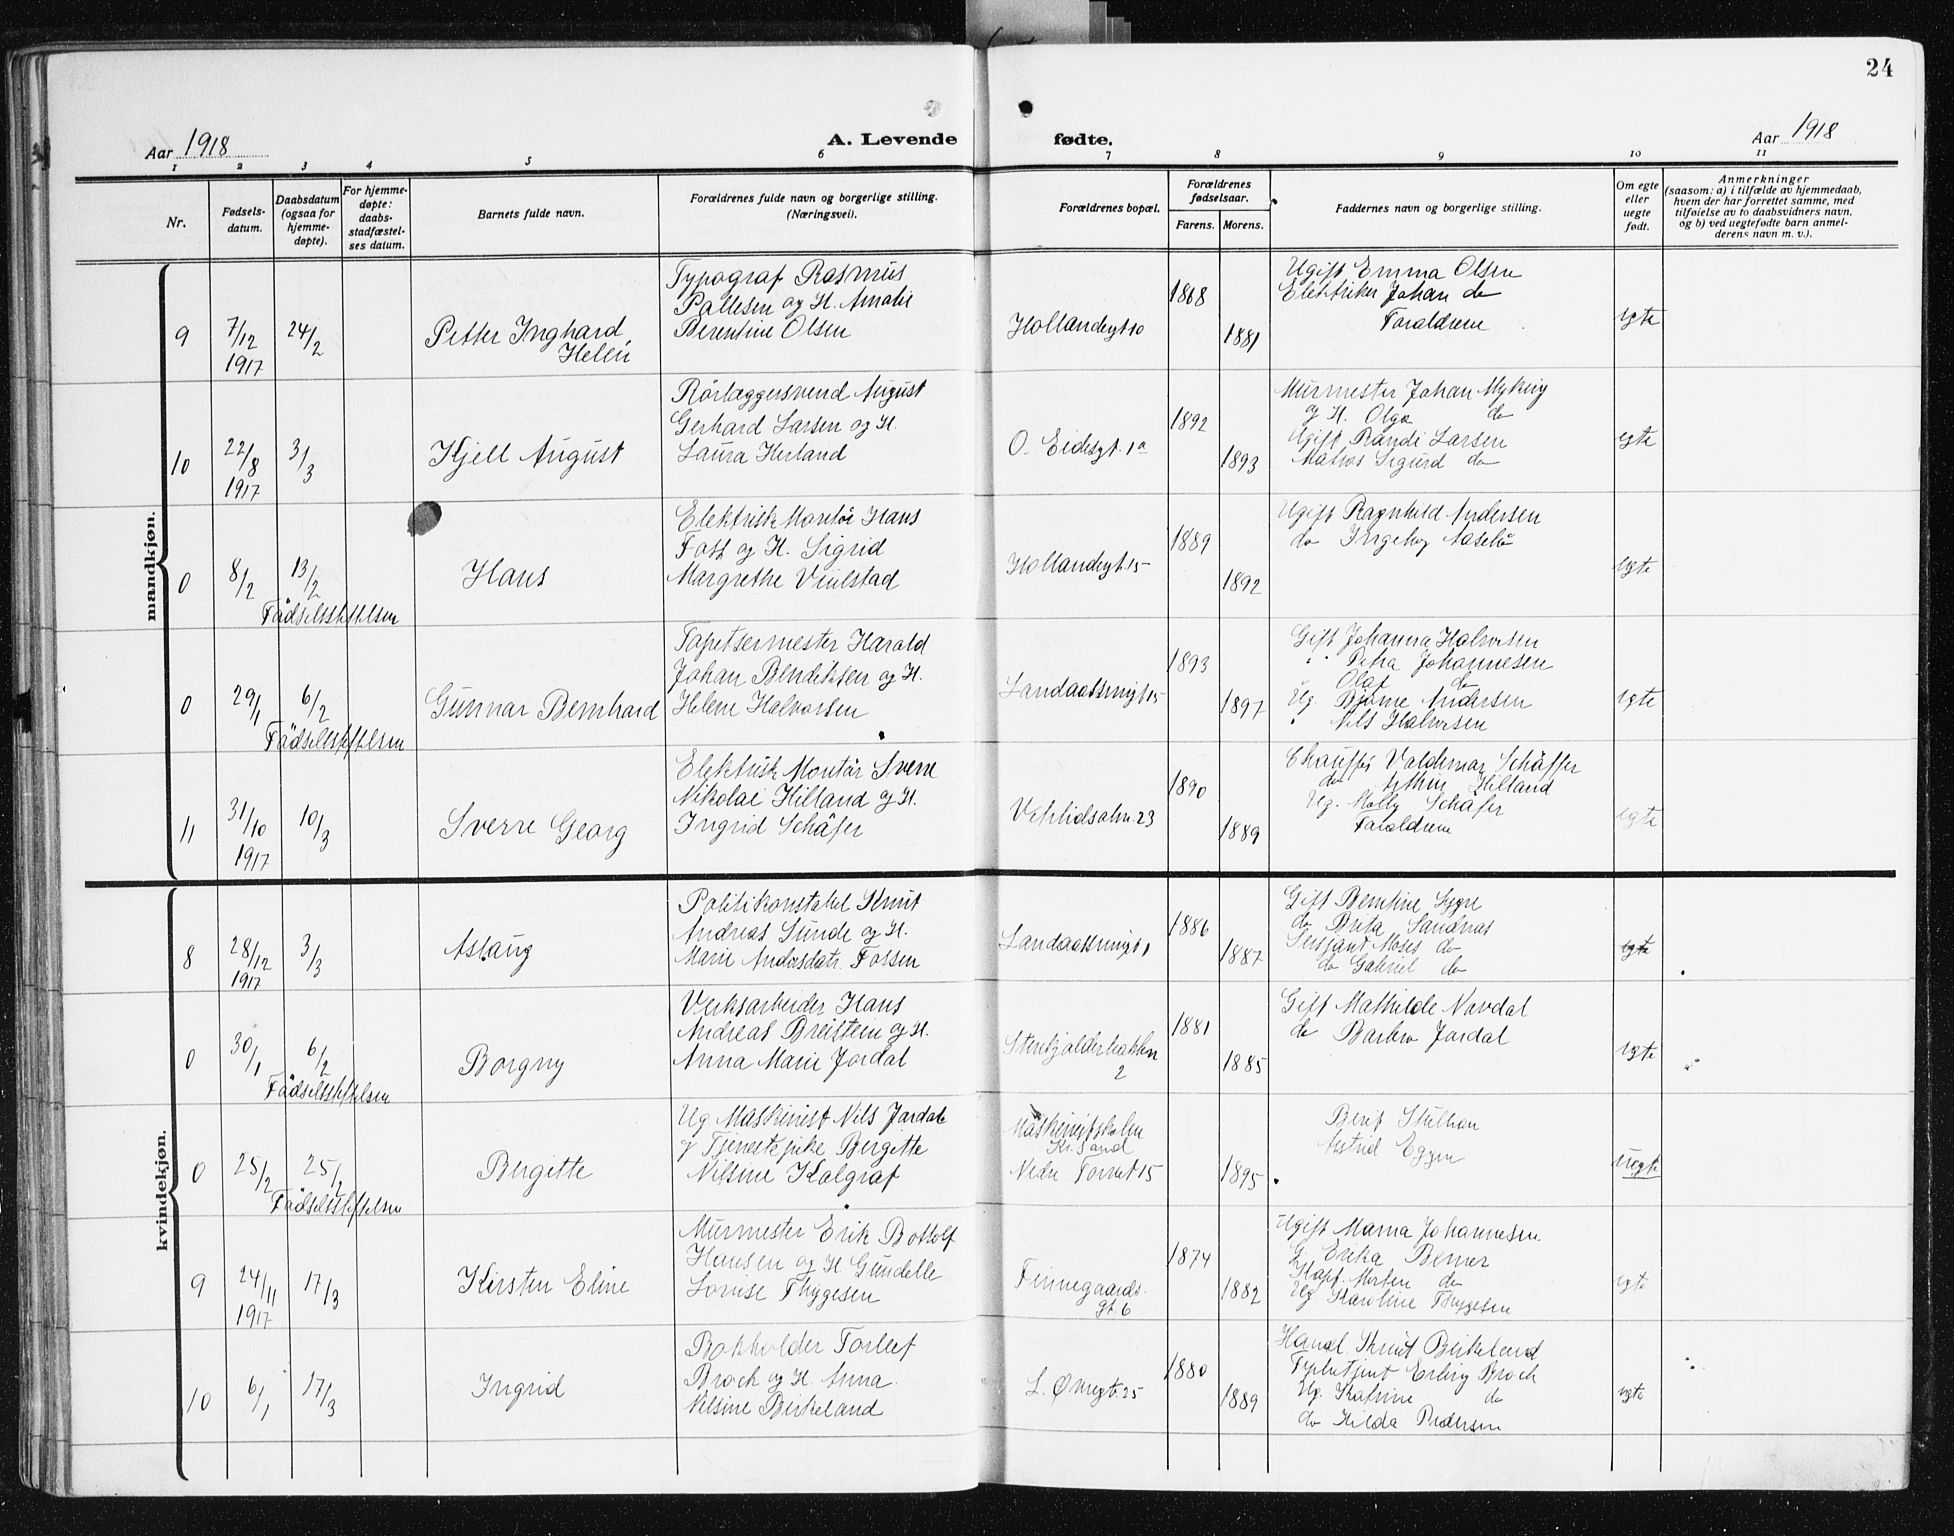 24
Aar 1918
A. Levende
fødte.
Aar 1918
1 2 3 4 5 6 7 8 9 10 11
Nr.
Fødsels-
datum.
Daabsdatum
(ogsaa for
hjemme-
døpte).
For hjemme-
døpte:
daabs-
stadfæstel-
ses datum.
Barnets fulde navn.
Forældrenes fulde navn og borgerlige stilling.
(Næringsvei).
Forældrenes bopæl.
Forældrenes
fødselsaar.
Farens. Morens.
Faddernes navn og borgerlige stilling.
Om egte
eller
uegte
født.
Anmerkninger
(saasom: a) i tilfælde av hjemmedaab,
hvem der har forrettet samme, med
tilføielse av to daabsvidners navn,
og b) ved uegtefødte barn anmel-
derens navn m. v.).
mandkjøn.
9
7/12
1917
24/2
Petter Inghard
Helén
Typograf Rasmus
Pallesen og H. Amalie
Berentine Olsen
Hollendergt 10
1868
1881
Ugift Emma Olsen
Elektriker Johan do
Forældrene
egte
10
22/8
1917
3/3
Kjell August
Rörlæggersvend August
Gerhard Larsen og H.
Laura Herland
O. Eidesgt. 1a
1892
1893
Murmester Johan Myking
og H. Olga do
Ugift Randi Larsen
Matros Sigurd do
egte
0
8/2
13/2
Fødselsstiftelsen
Hans
Elektrisk Montör Hans
og H. Sigrid
Margrethe
Hollendergt. 15
1889
1892
Ugift Ragnhild Andersen
do Ingeborg
egte
0
29/1
6/2
Fødselsstiftelsen
Gunnar Bernhard
Tapetsermester Harald
Johan Bendiksen og H.
Helene Halvorsen
15
1893
1897
Gift Johanna Halvorsen
" Petra Johannesen
Olaf do
Ug. Bjarne Andersen
" Nils Halvorsen
egte
11
31/10
1917
10/3
Sverre Georg
Elektrisk Montör Sverre
Nikolai Hilland og H.
Ingrid Schäfer
23
1890
1889
Chauffør Valdemar Schäffer
do Hilland
Ug. Molly Schäfer
Forældrene
egte
kvindekjøn.
8
28/12
1917
3/3
Aslaug
Politikonstabel Knut
Andreas Sunde og H.
Marie Andersdatr. Fossen
1
1886
1887
Gift Berntine
do Brita Sandnas
Sersjant Moses do
do Gabriel do
egte
0
30/1
6/2
Fødselsstiftelsen
Borgny
Verksarbeider Hans
Andreas Breistein og H.
Anna Marie Jordal
Stenkjelderbakken
2
1881
1885
Gift Mathilde Navdal
do Barbro Jordal
egte
0
25/2
25/2
Fødselsstiftelsen
Bergitte
Ug Maskinist Nils Jordal
og Tjenestepike Bergitte
Nilsine Kalgraf
Maskinistskolen
Kr. Sand
Nedre Torvet 15
1895
Berit
Astrid Eggen
uegte
9
24/11
1917
17/3
Kirsten Eline
Murmester Erik Bottolf
Hansen og H. Gundelle
Lovise Thygesen
Finnegaards-
gt. 6
1874
1882
Ugift Marna Johannesen.
G. Erika Berner
Kapt. Morten do
Ug Karoline Thygesen
egte
10
6/1
17/3
Ingrid
Bokholder Torleif
Broch og H. Anna
Nilsine Birkeland
L. Øvregt. 25
1880
1889
Handl. Knut Birkeland
Erling Broch
Ug. Katrine do
do Hilda Pedersen
egte